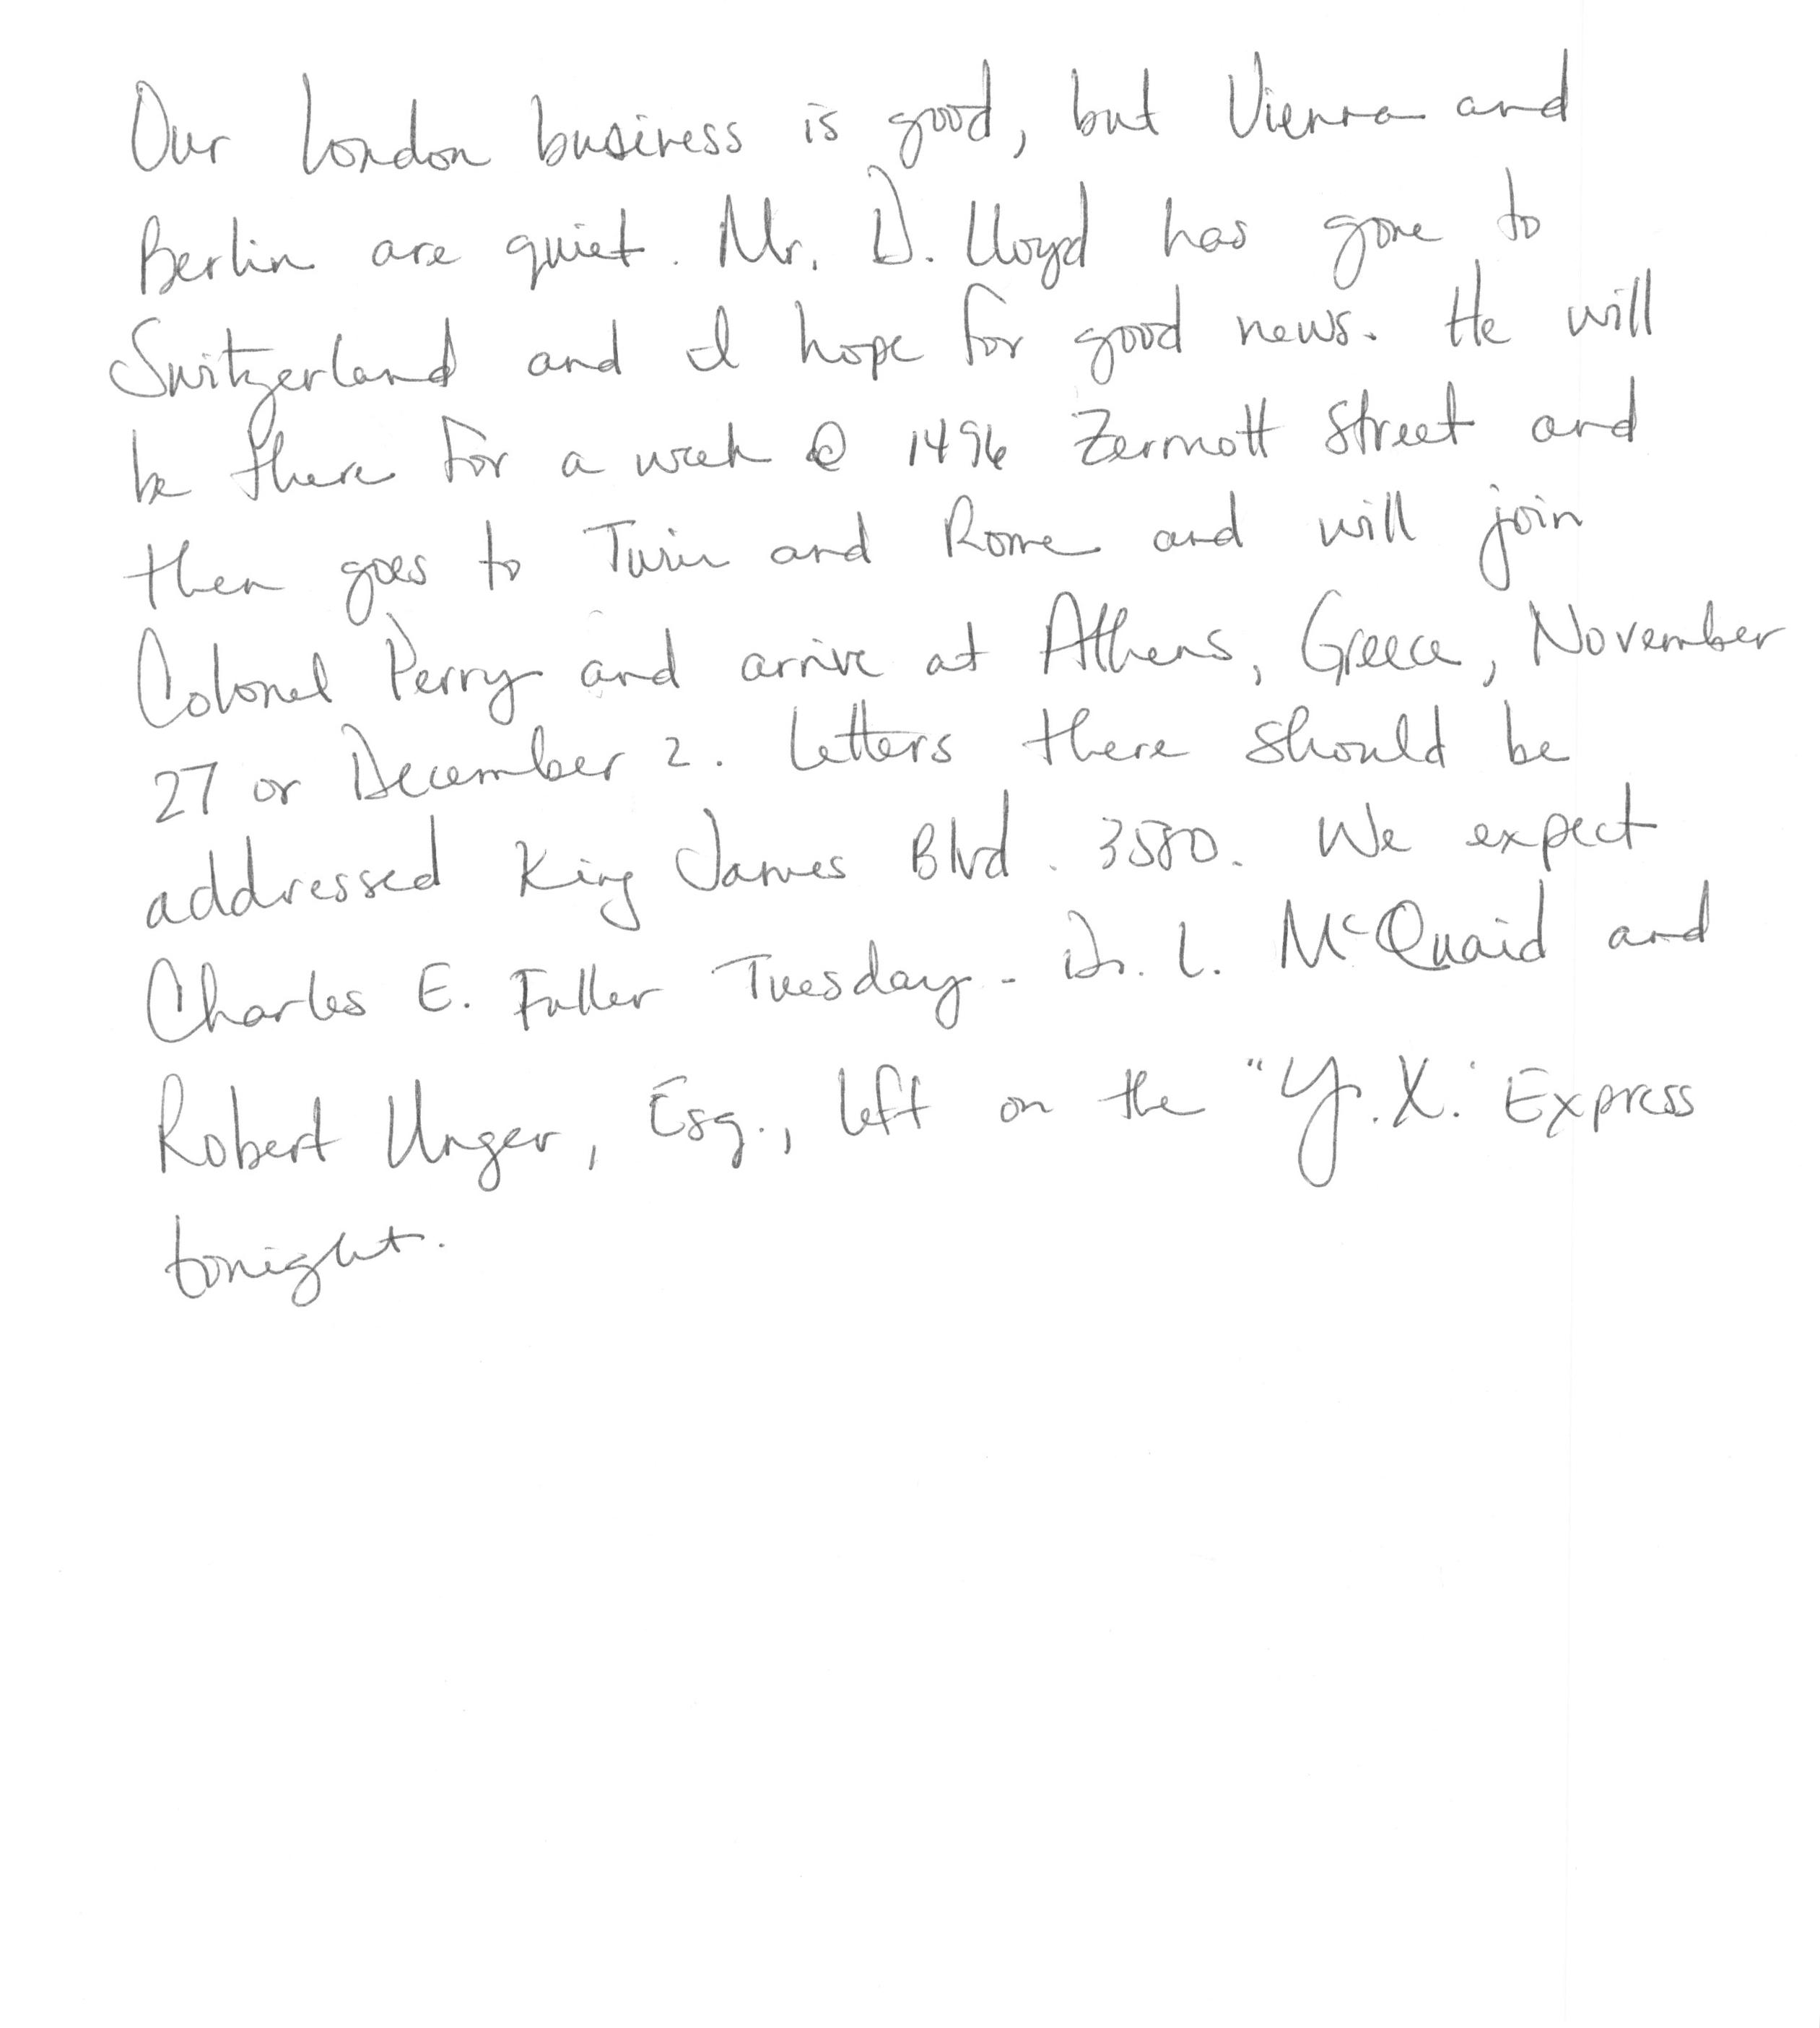 Our London business is good, but Vienna and
Berlin are quiet. Mr. D. Lloyd has gone to
Switzerland and I hope for good news. He will
be there for a week @ 1496 Zermott Street and
then goes to Turin and Rome and will join
Colonel Perry and arrive at Athens, Greece, November
27 or December 2. Letters there should be
addressed King James Blvd. 3580. We expect
Charles E. Fuller Tuesday. Dr. L. McQuaid and
Robert Unger, Esq., left on the "Y.X." Express
tonight.